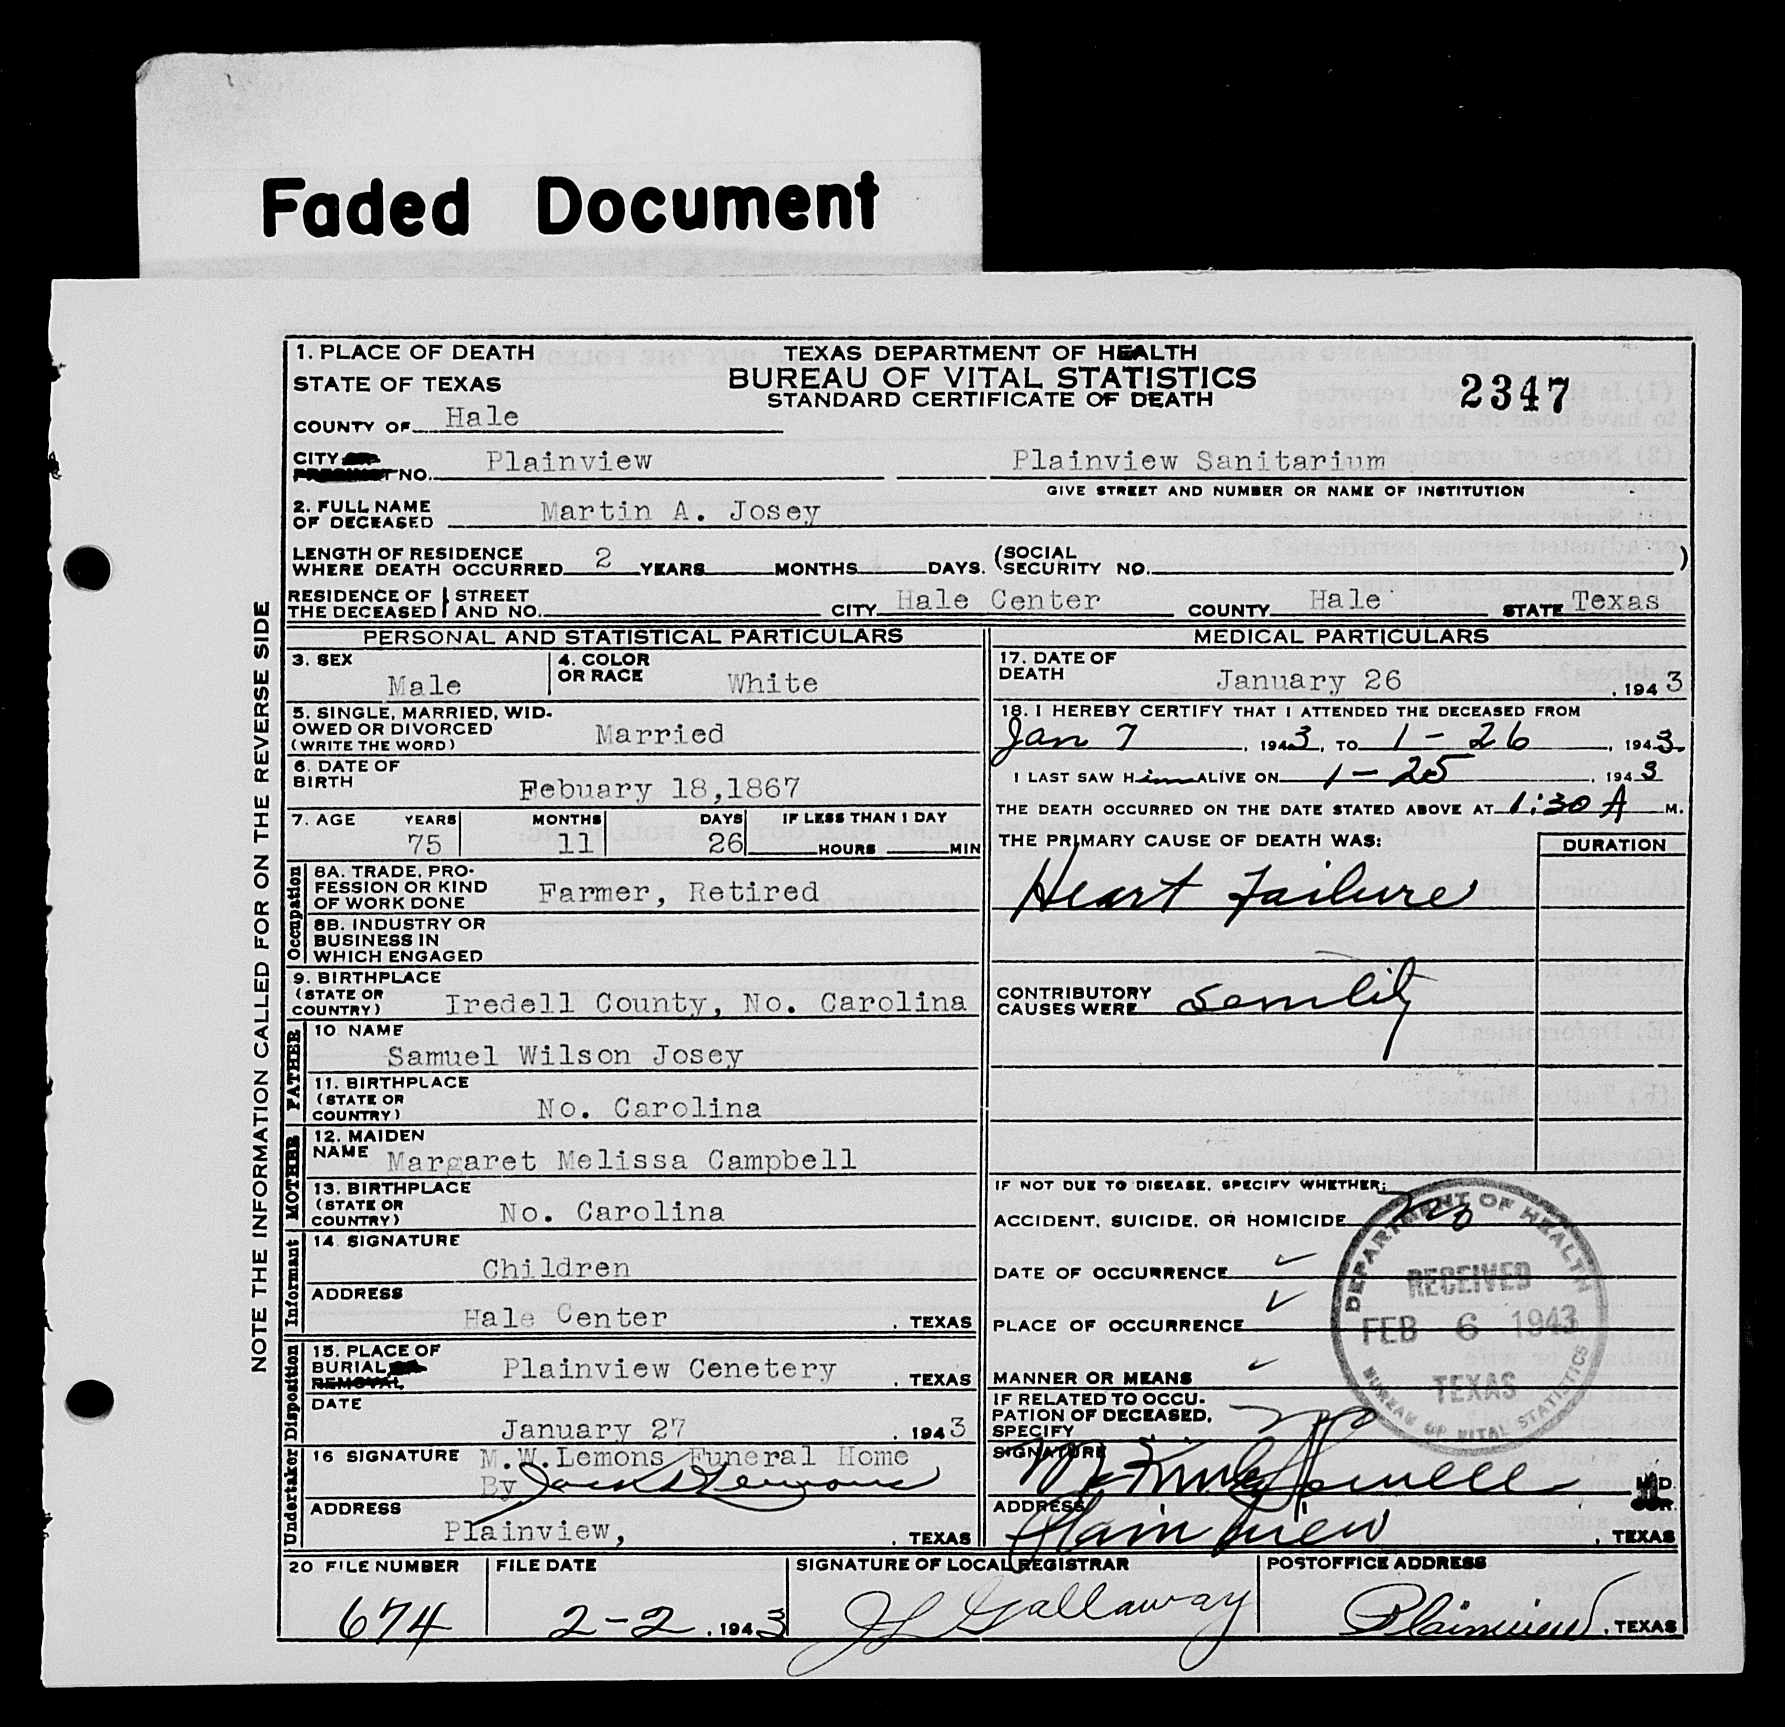 Faded Document
1. PLACE OF DEATH
STATE OF TEXAS
COUNTY OF Hale
TEXAS DEPARTMENT OF HEALTH
BUREAU OF VITAL STATISTICS
STANDARD CERTIFICATE OF DEATH
2347
CITY
PRECINCT NO. Plainview
Plainview Sanitarium
GIVE STREET AND NUMBER OR NAME OF INSTITUTION
2. FULL NAME
OF DECEASED Martin A. Josey
LENGTH OF RESIDENCE
WHERE DEATH OCCURRED 2 YEARS MONTHS DAYS. (SOCIAL
SECURITY NO. )
RESIDENCE OF
THE DECEASED } STREET
AND NO. CITY Hale Center COUNTY Hale STATE Texas
PERSONAL AND STATISTICAL PARTICULARS
3. SEX
Male
4. COLOR
OR RACE White
5. SINGLE, MARRIED, WID-
OWED OR DIVORCED
(WRITE THE WORD) Married
6. DATE OF
BIRTH Febuary 18,1867
7. AGE YEARS MONTHS DAYS IF LESS THAN 1 DAY
75 11 26 HOURS MIN
Occupation
8A. TRADE, PRO-
FESSION OR KIND
OF WORK DONE Farmer, Retired
8B. INDUSTRY OR
BUSINESS IN
WHICH ENGAGED
9. BIRTHPLACE
(STATE OR
COUNTRY) Iredell County, No. Carolina
FATHER
10. NAME
Samuel Wilson Josey
11. BIRTHPLACE
(STATE OR
COUNTRY) No. Carolina
MOTHER
12. MAIDEN
NAME Margaret Melissa Campbell
13. BIRTHPLACE
(STATE OR
COUNTRY) No. Carolina
Informant
14. SIGNATURE
Children
ADDRESS
Hale Center , TEXAS
Disposition
15. PLACE OF
BURIAL
REMOVAL Plainview Cenetery , TEXAS
DATE
January 27 , 1943
Undertaker
16 SIGNATURE M.W.Lemons Funeral Home
By Jack Lemons
ADDRESS
Plainview, , TEXAS
MEDICAL PARTICULARS
17. DATE OF
DEATH January 26 , 1943
18. I HEREBY CERTIFY THAT I ATTENDED THE DECEASED FROM
Jan 7 , 1943, TO 1-26 , 1943
I LAST SAW Him ALIVE ON 1-25 , 1943
THE DEATH OCCURRED ON THE DATE STATED ABOVE AT 1:30 A M.
THE PRIMARY CAUSE OF DEATH WAS: DURATION
Heart Failure
CONTRIBUTORY
CAUSES WERE Senility
IF NOT DUE TO DISEASE, SPECIFY WHETHER:
ACCIDENT, SUICIDE, OR HOMICIDE no
DATE OF OCCURRENCE ✓
PLACE OF OCCURRENCE ✓
MANNER OR MEANS ✓
IF RELATED TO OCCU-
PATION OF DECEASED,
SPECIFY no
SIGNATURE M.D.
ADDRESS Plainview , TEXAS
DEPARTMENT OF HEALTH
RECEIVED
FEB 6 1943
TEXAS
BUREAU OF VITAL STATISTICS
20 FILE NUMBER FILE DATE SIGNATURE OF LOCAL REGISTRAR POSTOFFICE ADDRESS
674 2-2, 1943 J L Gallaway Plainview, TEXAS
NOTE THE INFORMATION CALLED FOR ON THE REVERSE SIDE